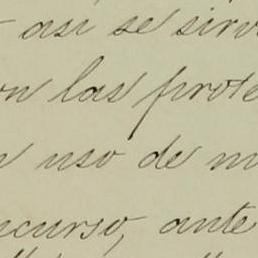 así se sirv
on las prote
n uso de m
scurso, ante